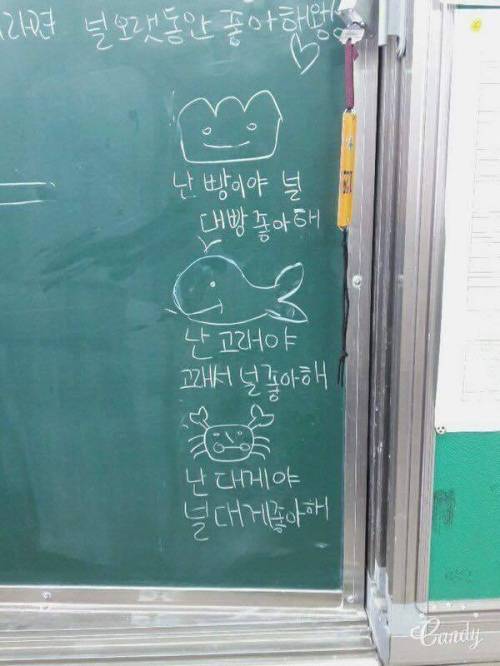 널 오랫동안 좋아해왔
난 빵이야 널
대빵 좋아해
난 고래야
고래서 널 좋아해
난 대게야
널 대게좋아해
Candy